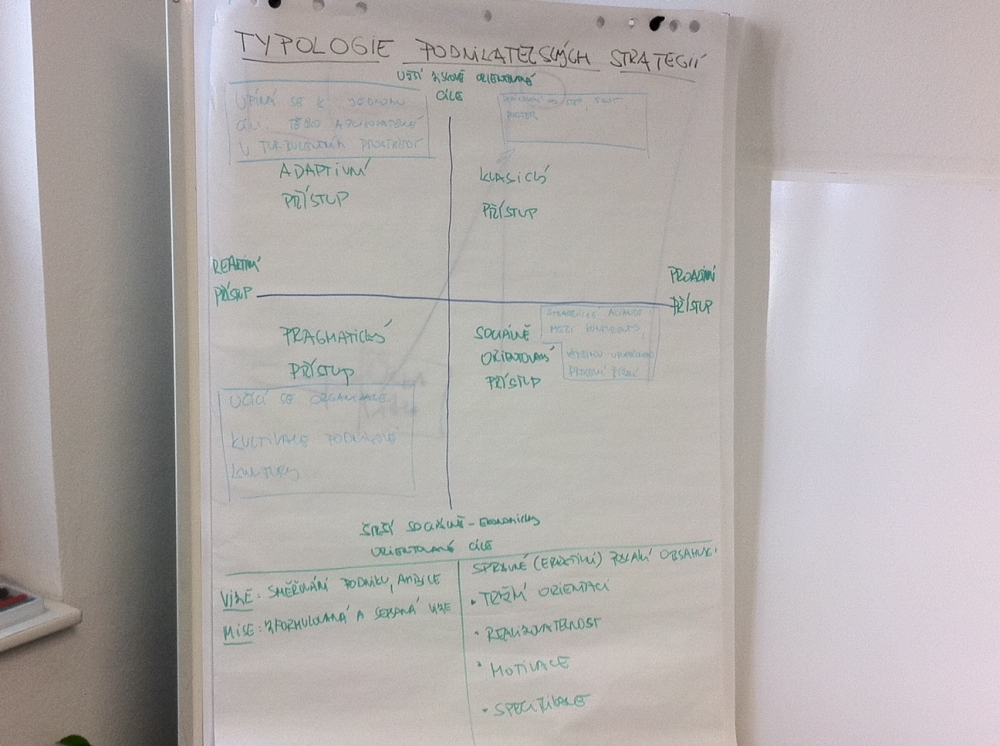 TYPOLOGIE PODNIKATELSKÝCH STRATEGIÍ
UŽŠÍ ZISKOVĚ ORIENTOVANÉ
CÍLE
UPÍNÁ SE K JEDNOMU
CÍLI, TĚŽKO
V TURBULENTNÍM PROSTŘEDÍ
ADAPTIVNÍ
PŘÍSTUP
KLASICKÝ
PŘÍSTUP
PORTER
REAKTIVNÍ
PŘÍSTUP
PROAKTIVNÍ
PŘÍSTUP
PRAGMATICKÝ
PŘÍSTUP
SOCIÁLNĚ
ORIENTOVANÝ
PŘÍSTUP
STRATEGICKÉ ALIANCE
MEZI KONKURENTY
UČÍCÍ SE ORGANIZACE
KULTIVACE PODNIKOVÉ
KULTURY
ŠIRŠÍ SOCIÁLNĚ - EKONOMICKY
ORIENTOVANÉ CÍLE
VIZE: SMĚŘOVÁNÍ PODNIKU, AMBICE
MISE: ZFORMULOVANÁ A SEPSANÁ VIZE
SPRÁVNÉ (EFEKTIVNÍ) POSLÁNÍ OBSAHUJE:
• TRŽNÍ ORIENTACI
• REALIZOVATELNOST
• MOTIVACE
• SPECIFIKACE